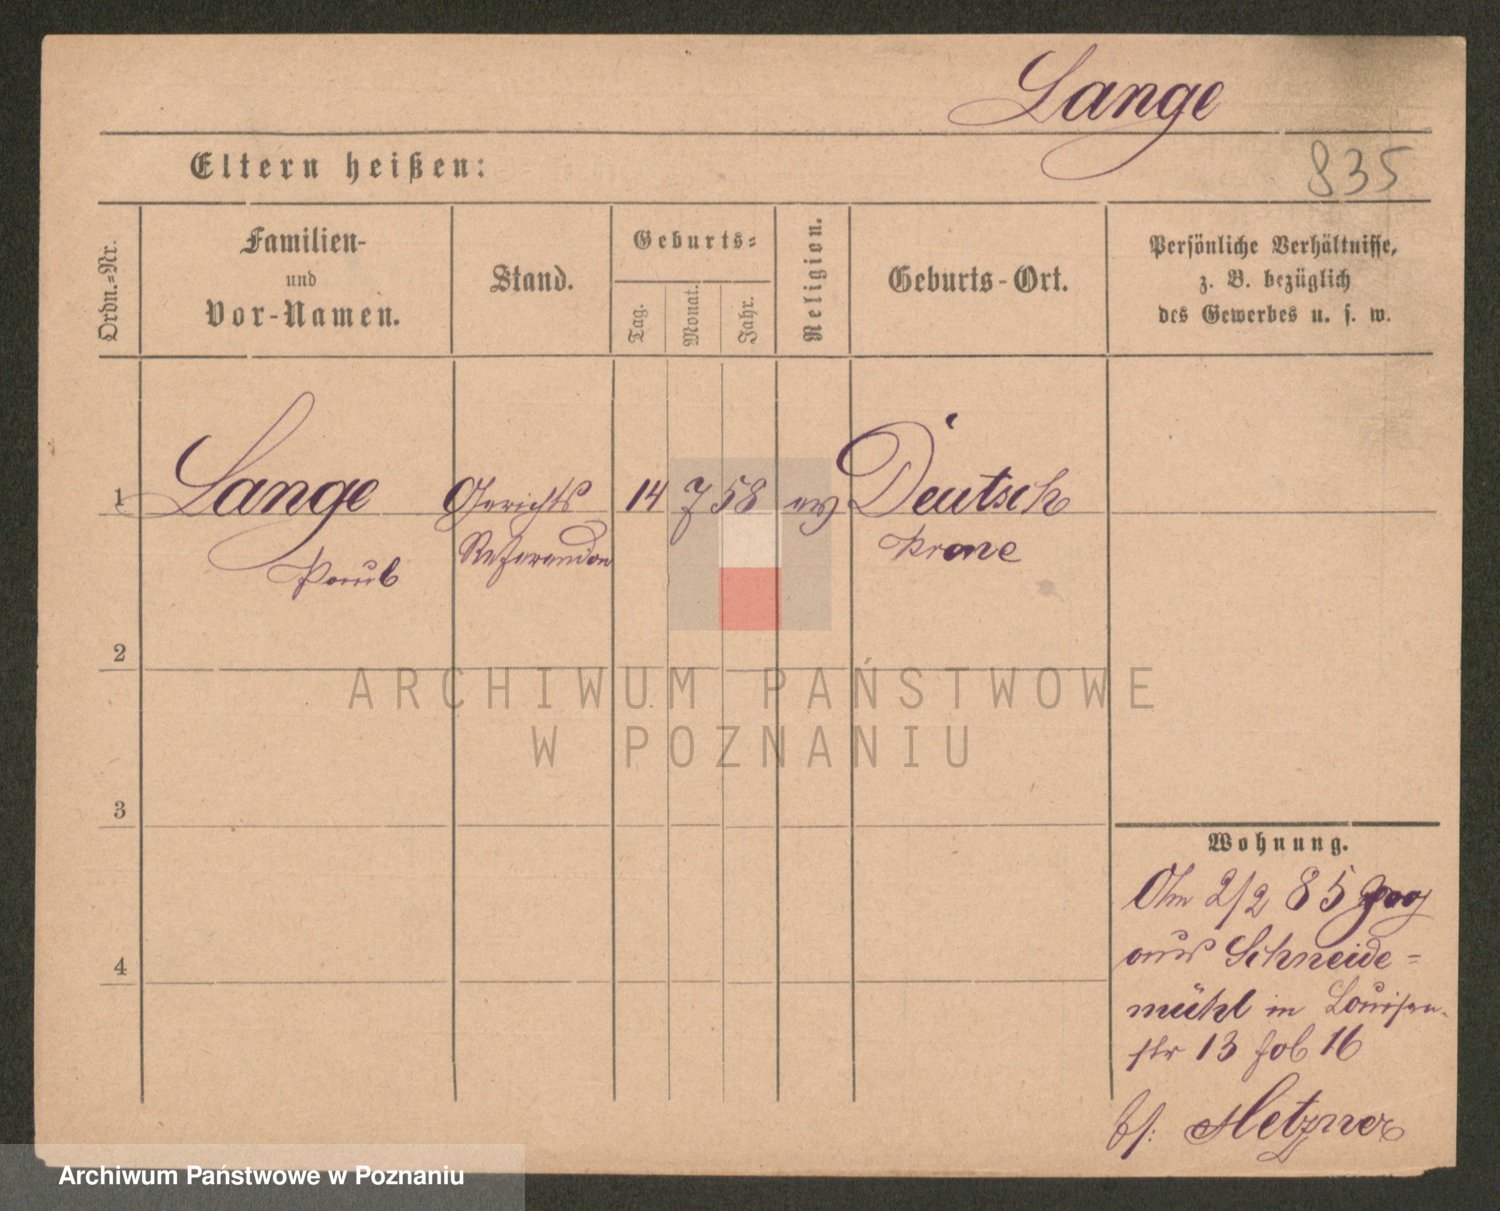 Lange
835
Eltern heißen:
Ordn.-Nr.
Familien-
und
Vor-Namen.
Stand.
Geburts-
Tag.
Monat.
Jahr.
Religion.
Geburts-Ort.
Persönliche Verhältnisse,
z. B. bezüglich
des Gewerbes u. s. w.
1 Lange Gerichts 14 7 58 ev Deutsch
Paul Referendar Krone
2
3
4
ARCHIWUM PAŃSTWOWE
W POZNANIU
Wohnung.
Am 2/2 85 zog
aus Schneide=
mühl in Louisen-
str 13 fol 16
bs: Metzner
Archiwum Państwowe w Poznaniu